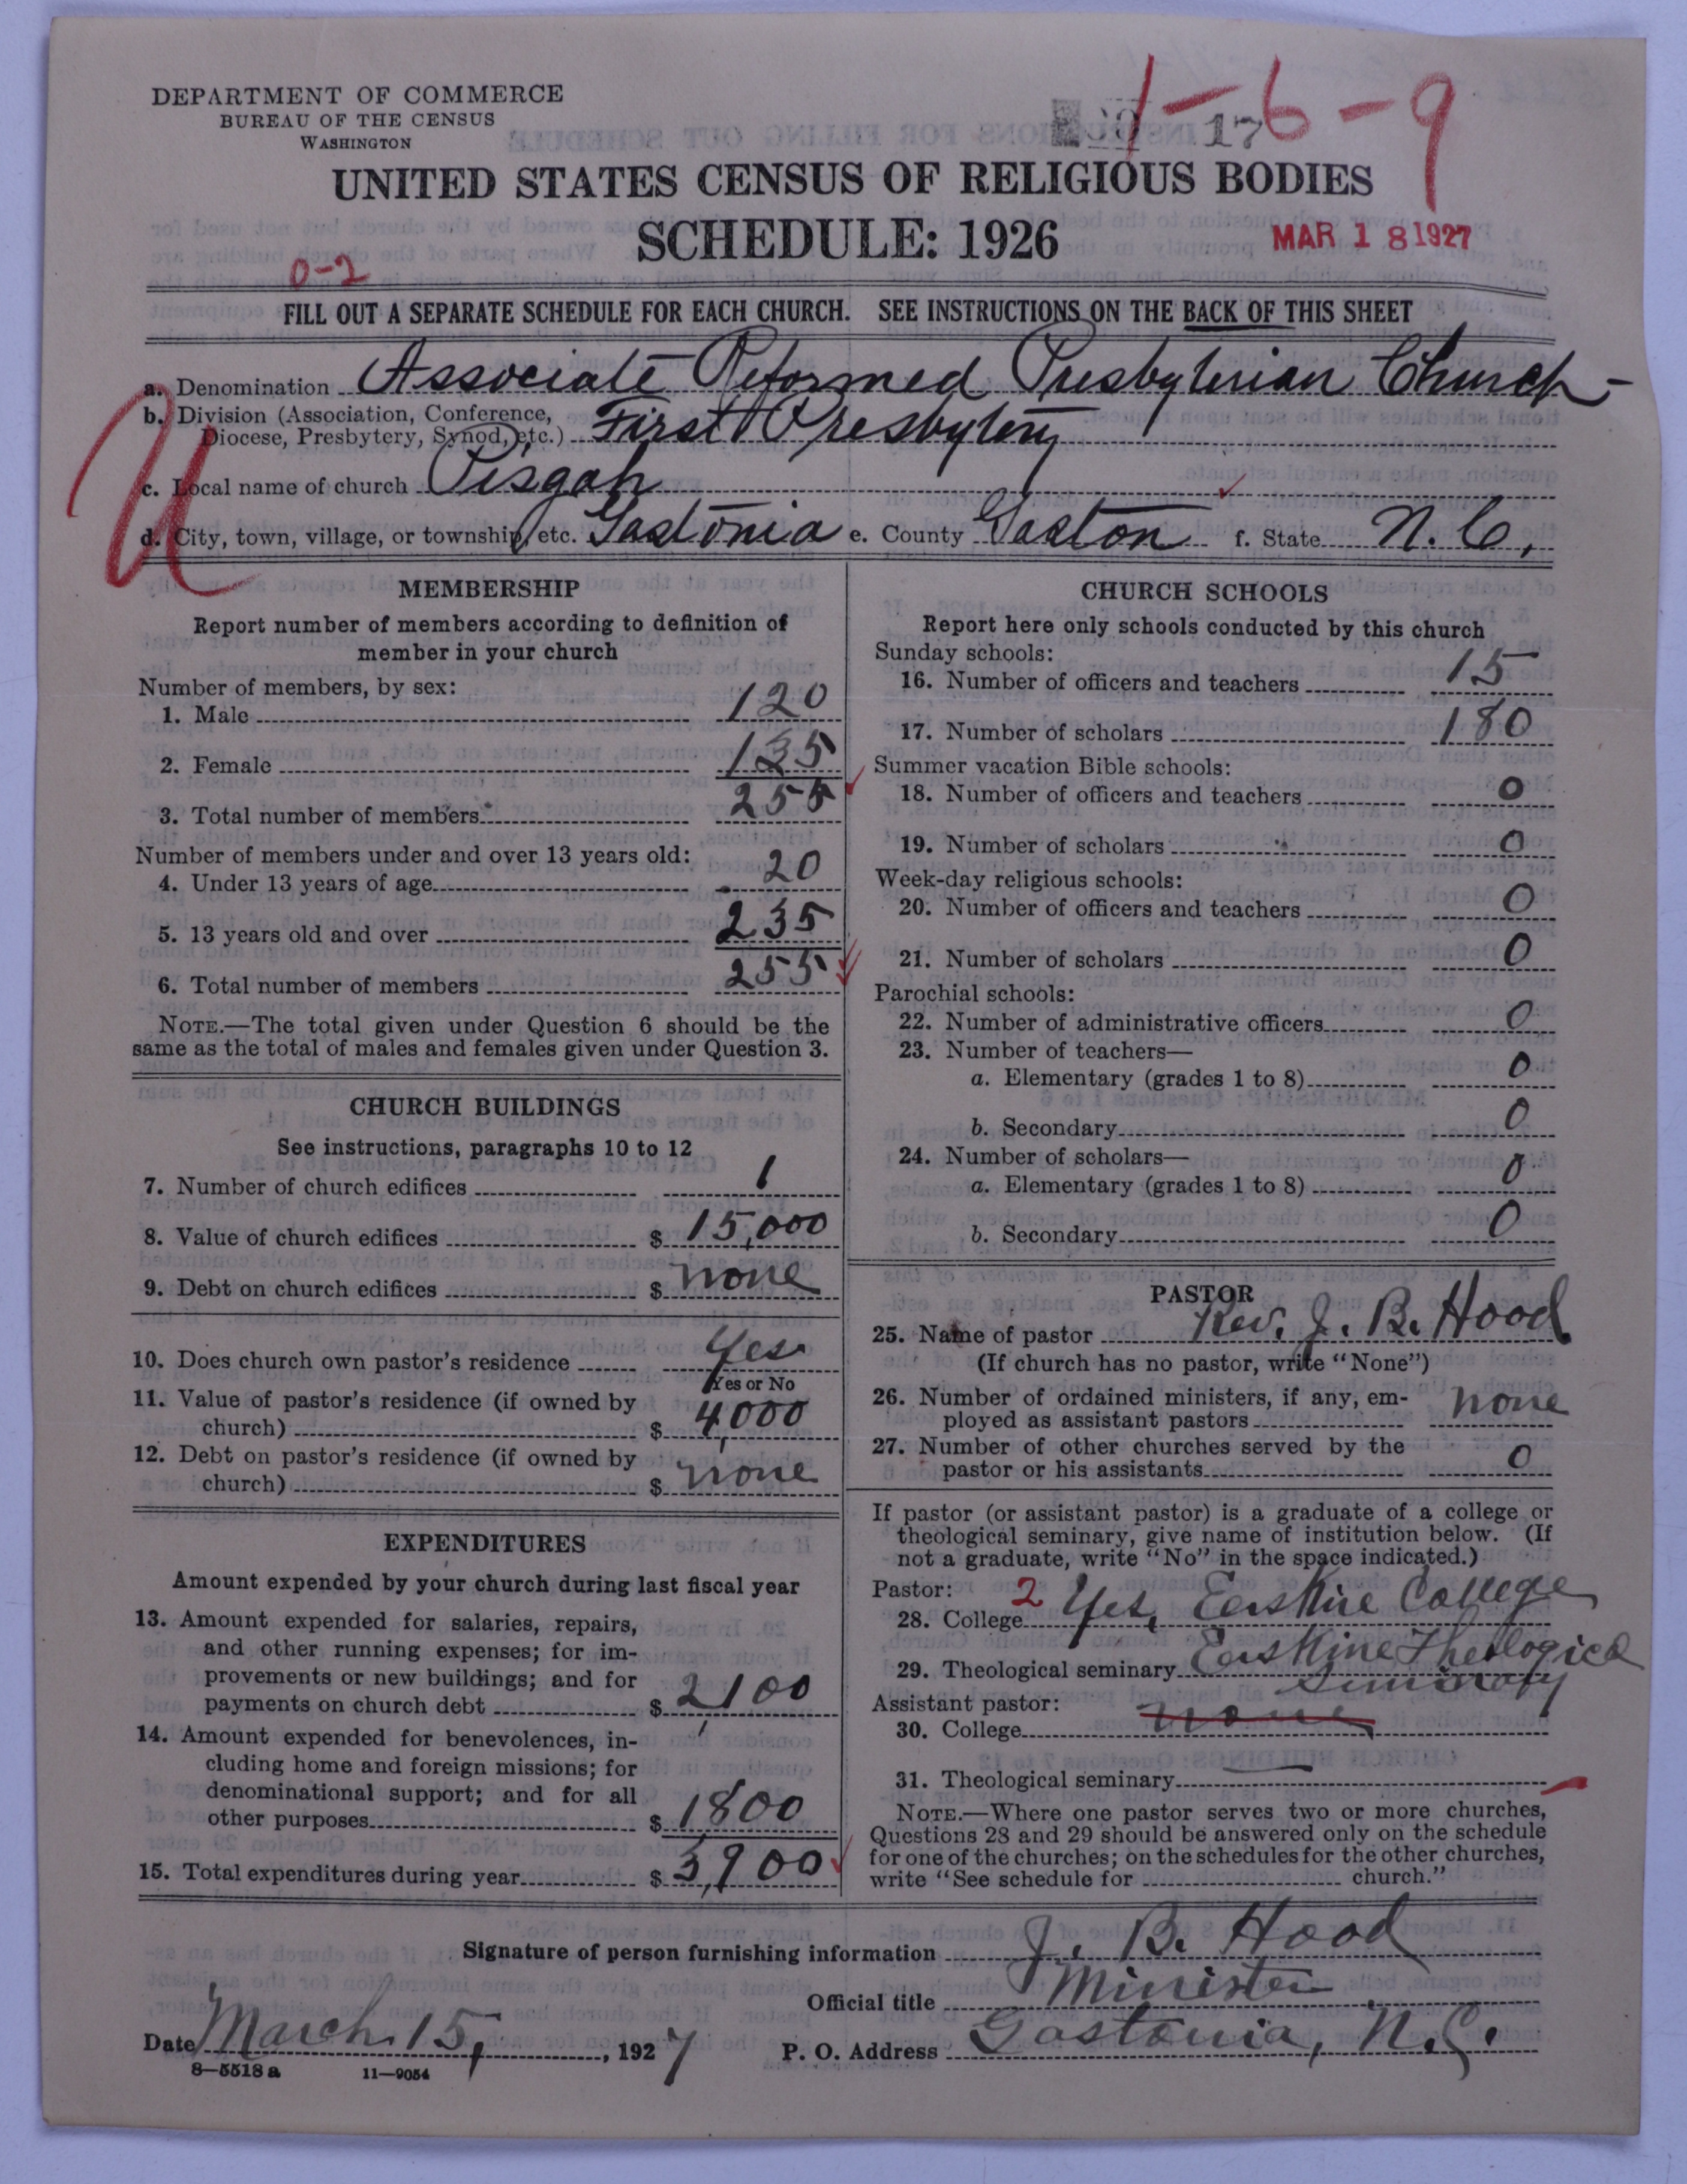 DEPARTMENT OF COMMERCE
BUREAU OF THE CENSUS
WASHINGTON
17
1-6-9
UNITED STATES CENSUS OF RELIGIOUS BODIES
SCHEDULE: 1926
MAR 18 1927
0-2
FILL OUT A SEPARATE SCHEDULE FOR EACH CHURCH. SEE INSTRUCTIONS ON THE BACK OF THIS SHEET
a. Denomination Associate Reformed Presbyterian Church
b. Division (Association, Conference,
Diocese, Presbytery, Synod, etc.) First Presbytery
c. Local name of church Pisgah
d. City, town, village, or township, etc. Gastonia e. County Gaston f. State N. C.
U
MEMBERSHIP
Report number of members according to definition of
member in your church
Number of members, by sex:
1. Male 120
2. Female 135
3. Total number of members 255
Number of members under and over 13 years old:
4. Under 13 years of age 20
5. 13 years old and over 235
6. Total number of members 255
NOTE.—The total given under Question 6 should be the
same as the total of males and females given under Question 3.
CHURCH BUILDINGS
See instructions, paragraphs 10 to 12
7. Number of church edifices 1
8. Value of church edifices $ 15,000
9. Debt on church edifices $ none
10. Does church own pastor's residence Yes
Yes or No
11. Value of pastor's residence (if owned by
church) $ 4,000
12. Debt on pastor's residence (if owned by
church) $ none
EXPENDITURES
Amount expended by your church during last fiscal year
13. Amount expended for salaries, repairs,
and other running expenses; for im-
provements or new buildings; and for
payments on church debt $ 2,100
14. Amount expended for benevolences, in-
cluding home and foreign missions; for
denominational support; and for all
other purposes $ 1800
15. Total expenditures during year $ 3,900
CHURCH SCHOOLS
Report here only schools conducted by this church
Sunday schools:
16. Number of officers and teachers 15
17. Number of scholars 180
Summer vacation Bible schools:
18. Number of officers and teachers 0
19. Number of scholars 0
Week-day religious schools:
20. Number of officers and teachers 0
21. Number of scholars 0
Parochial schools:
22. Number of administrative officers 0
23. Number of teachers—
a. Elementary (grades 1 to 8) 0
b. Secondary 0
24. Number of scholars—
a. Elementary (grades 1 to 8) 0
b. Secondary 0
PASTOR
25. Name of pastor Rev. J. B. Hood
(If church has no pastor, write "None")
26. Number of ordained ministers, if any, em-
ployed as assistant pastors none
27. Number of other churches served by the
pastor or his assistants 0
If pastor (or assistant pastor) is a graduate of a college or
theological seminary, give name of institution below. (If
not a graduate, write "No" in the space indicated.)
Pastor:
28. College 2 Yes, Erskine College
29. Theological seminary Erskine Theological
Seminary
Assistant pastor:
30. College none
31. Theological seminary
NOTE.—Where one pastor serves two or more churches,
Questions 28 and 29 should be answered only on the schedule
for one of the churches; on the schedules for the other churches,
write "See schedule for church."
Signature of person furnishing information J. B. Hood
Official title Minister
Date March 15, 1927 P. O. Address Gastonia, N.C.
8—5518 a 11—9054